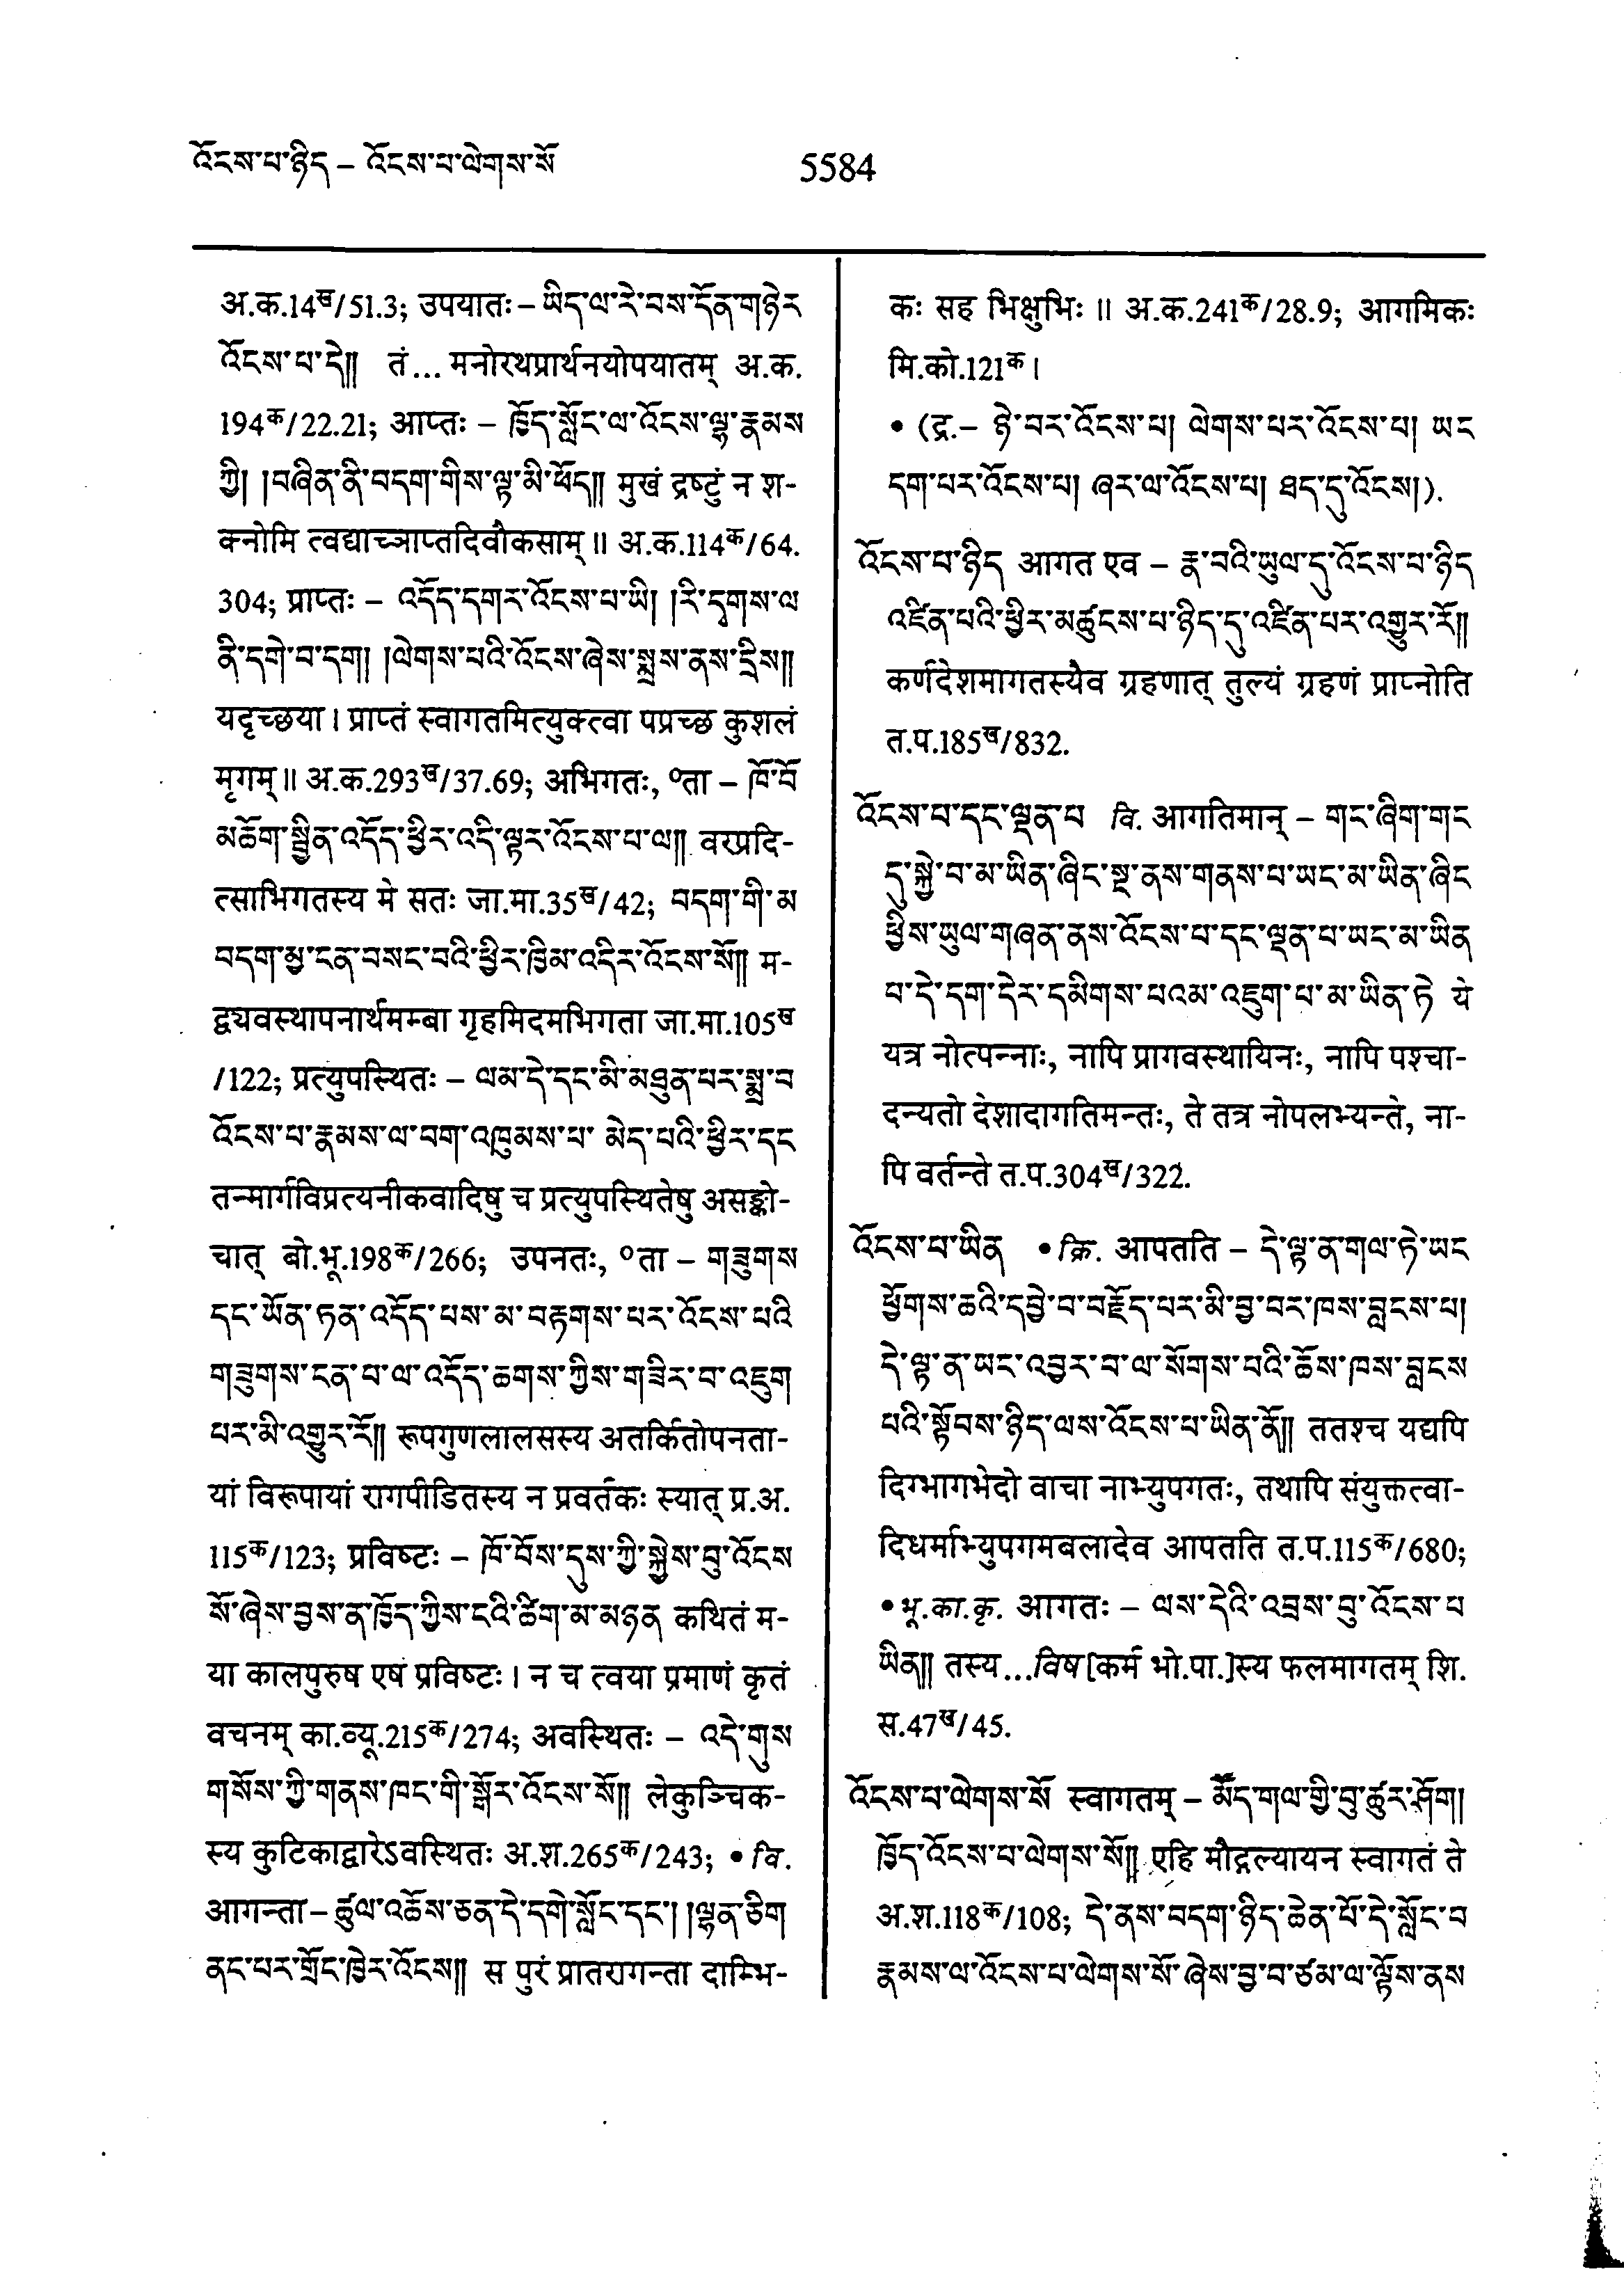 འོངས་པ་ཉིད – འོངས་པ་ལེགས་སོ
5584
अ.क.14ख/51.3; उपयातः – ཡིད་ལ་རེ་བས་དོན་གཉེར
འོངས་པ་དེ།། तं... मनोरथप्रार्थनयोपयातम् अ.क.
194क/22.21; आप्तः – ཁྱོད་སློང་ལ་འོངས་ལྷ་རྣམས
ཀྱི། །བཞིན་ནི་བདག་གིས་ལྟ་མི་ཕོད།། मुखं द्रष्टुं न श-
क्नोमि त्वद्याच्ञाप्तदिवौकसाम्॥ अ.क.114क/64.
304; प्राप्तः – འདོད་དགར་འོངས་པ་ཡི། །རི་དྭགས་ལ
ནི་དགེ་བ་དག། །ལེགས་པའི་འོངས་ཞེས་སྨྲས་ནས་དྲིས།།
यदृच्छया। प्राप्तं स्वागतमित्युक्त्वा पप्रच्छ कुशलं
मृगम्॥ अ.क.293ख/37.69; अभिगतः, ०ता – ཁོ་བོ
མཆོག་སྦྱིན་འདོད་ཕྱིར་འདི་ལྟར་འོངས་པ་ལ།། वरप्रदि-
त्साभिगतस्य मे सतः जा.मा.35ख/42; བདག་གི་མ
བདག་མྱ་ངན་བསང་བའི་ཕྱིར་ཁྱིམ་འདིར་འོངས་སོ།། म-
द्व्यवस्थापनार्थमम्बा गृहमिदमभिगता जा.मा.105ख
/122; प्रत्युपस्थितः – ལམ་དེ་དང་མི་མཐུན་པར་སྨྲ་བ
འོངས་པ་རྣམས་ལ་བག་འཁུམས་པ་ མེད་པའི་ཕྱིར་དང
तन्मार्गविप्रत्यनीकवादिषु च प्रत्युपस्थितेषु असङ्को-
चात् बो.भू.198क/266; उपनतः, ०ता – གཟུགས
དང་ཡོན་ཏན་འདོད་པས་མ་བརྟགས་པར་འོངས་པའི
གཟུགས་ངན་པ་ལ་འདོད་ཆགས་ཀྱིས་གཟིར་བ་འཇུག
པར་མི་འགྱུར་རོ།། रूपगुणलालसस्य अतर्कितोपनता-
यां विरूपायां रागपीडितस्य न प्रवर्तकः स्यात् प्र.अ.
115क/123; प्रविष्टः – ཁོ་བོས་དུས་ཀྱི་སྐྱེས་བུ་འོངས
སོ་ཞེས་བྱས་ན་ཁྱོད་ཀྱིས་ངའི་ཚིག་མ་མཉན कथितं म-
या कालपुरुष एष प्रविष्टः। न च त्वया प्रमाणं कृतं
वचनम् का.व्यू.215क/274; अवस्थितः – འདེ་གུས
གསོས་ཀྱི་གནས་ཁང་གི་སྒོར་འོངས་སོ།། लेकुञ्चिक-
स्य कुटिकाद्वारेऽवस्थितः अ.श.265क/243; • वि.
आगन्ता – ཚུལ་འཆོས་ཅན་དེ་དགེ་སློང་དང་། །ལྷན་ཅིག
ནང་པར་གྲོང་ཁྱེར་འོངས།། स पुरं प्रातरागन्ता दाम्भि-
कः सह भिक्षुभिः॥ अ.क.241क/28.9; आगमिकः
मि.को.121क।
• (द्र.– ཉེ་བར་འོངས་པ། ལེགས་པར་འོངས་པ། ཡང
དག་པར་འོངས་པ། ཞར་ལ་འོངས་པ། ཐད་དུ་འོངས།).
འོངས་པ་ཉིད आगत एव – རྣ་བའི་ཡུལ་དུ་འོངས་བ་ཉིད
འཛིན་པའི་ཕྱིར་མཚུངས་པ་ཉིད་དུ་འཛིན་པར་འགྱུར་རོ།།
कर्णदेशमागतस्यैव ग्रहणात् तुल्यं ग्रहणं प्राप्नोति
त.प.185ख/832.
འོངས་པ་དང་ལྡན་པ वि. आगतिमान् – གང་ཞིག་གང
དུ་སྐྱེ་བ་མ་ཡིན་ཞིང་སྔ་ནས་གནས་པ་ཡང་མ་ཡིན་ཞིང
ཕྱིས་ཡུལ་གཞན་ནས་འོངས་པ་དང་ལྡན་པ་ཡང་མ་ཡིན
པ་དེ་དག་དེར་དམིགས་པའམ་འཇུག་པ་མ་ཡིན་ཏེ ये
यत्र नोत्पन्नाः, नापि प्रागवस्थायिनः, नापि पश्चा-
दन्यतो देशादागतिमन्तः, ते तत्र नोपलभ्यन्ते, ना-
पि वर्तन्ते त.प.304ख/322.
འོངས་པ་ཡིན • क्रि. आपतति – དེ་ལྟ་ན་གལ་ཏེ་ཡང
ཕྱོགས་ཆའི་དབྱེ་བ་བརྗོད་པར་མི་བྱ་བར་ཁས་བླངས་པ།
དེ་ལྟ་ན་ཡང་འབྱར་བ་ལ་སོགས་པའི་ཆོས་ཁས་བླངས
པའི་སྟོབས་ཉིད་ལས་འོངས་པ་ཡིན་ནོ།། ततश्च यद्यपि
दिग्भागभेदो वाचा नाभ्युपगतः, तथापि संयुक्तत्वा-
दिधर्माभ्युपगमबलादेव आपतति त.प.115क/680;
• भू.का.कृ. आगतः – ལས་དེའི་འབྲས་བུ་འོངས་པ
ཡིན།། तस्य...विष[कर्म भो.पा.]स्य फलमागतम् शि.
स.47ख/45.
འོངས་པ་ལེགས་སོ स्वागतम् – མོད་གལ་གྱི་བུ་ཚུར་ཤོག།
ཁྱོད་འོངས་པ་ལེགས་སོ།། एहि मौद्गल्यायन स्वागतं ते
अ.श.118क/108; དེ་ནས་བདག་ཉིད་ཆེན་པོ་དེ་སློང་བ
རྣམས་ལ་འོངས་པ་ལེགས་སོ་ཞེས་བྱ་བ་ཙམ་ལ་ལྟོས་ནས